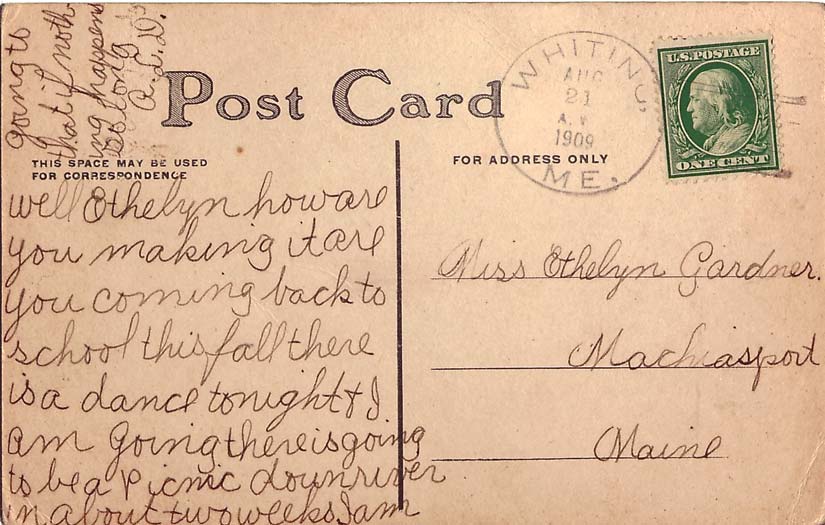 going to
that if noth
ing happens
So long
A.L.D.
Post Card
THIS SPACE MAY BE USED
FOR CORRESPONDENCE
FOR ADDRESS ONLY
WHITING
AUG
21
1909
ME.
U.S. POSTAGE
ONE CENT
well Ethelyn how are
you making it are
you coming back to
school this fall there
is a dance tonight & I
am going there is going
to be a Picnic down river
in about two weeks I am
Miss Ethelyn Gardner.
Machiasport
Maine